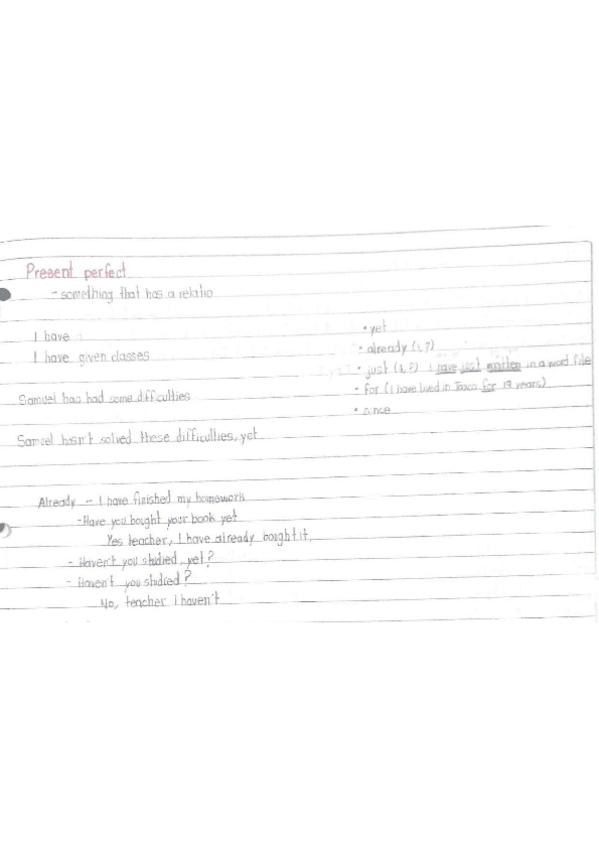 Present perfect
- something that has a relatio
I have
I have given classes
Samuel has had some difficulties
Samuel hasn't solved these difficulties, yet
• yet
• already (
• just ( I have just written in a word file
• for (I have lived in Taxco for 19 years)
• since
Already - I have finished my homework
- Have you bought your book yet
Yes teacher, I have already bought it.
- Haven't you studied, yet?
- Haven't you studied?
No, teacher I haven't